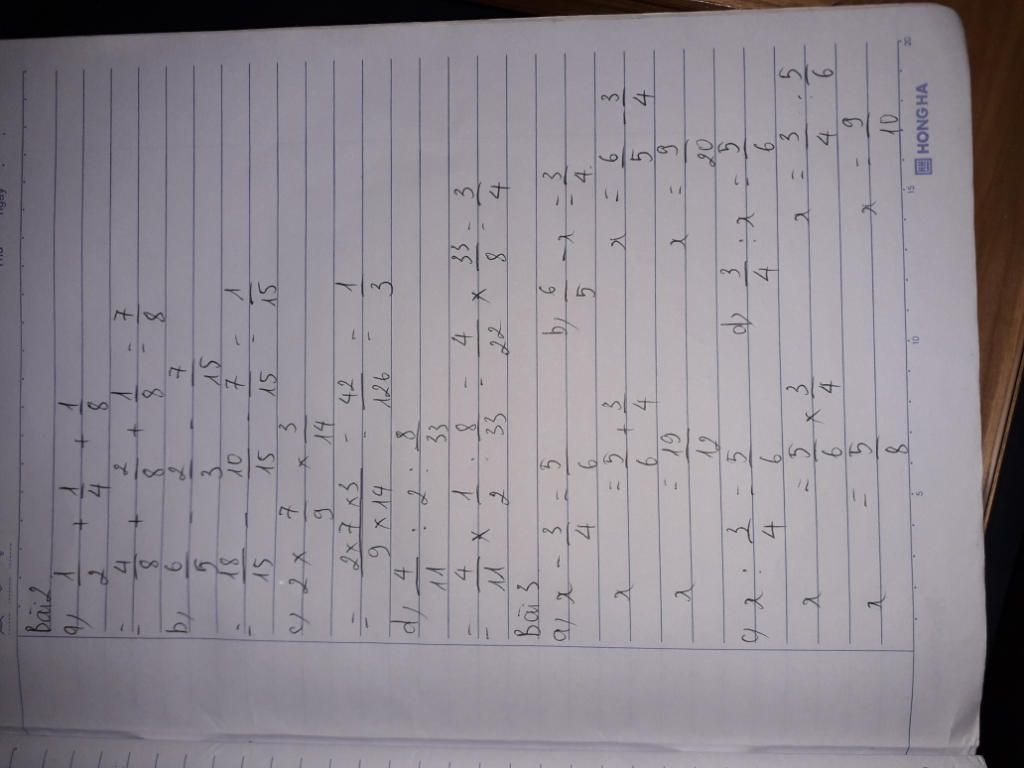 Bài 2
a) 1/2 + 1/4 + 1/8
= 4/8 + 2/8 + 1/8 = 7/8
b) 6/5 - 2/3 - 7/15
= 18/15 - 10/15 - 7/15 = 1/15
c) 2 x 7/9 x 3/14
= 2x7x3/9x14 = 42/126 = 1/3
d) 4/11 : 2 : 8/33
= 4/11 x 1/2 : 8/33 = 4/22 x 33/8 = 3/4
Bài 3
a) x - 3/4 = 5/6
x = 5/6 + 3/4
x = 19/12
b) 6/5 - x = 3/4
x = 6/5 - 3/4
x = 9/20
c) x : 3/4 = 5/6
x = 5/6 x 3/4
x = 5/8
d) 3/4 : x = 5/6
x = 3/4 : 5/6
x = 9/10
HONG HA
5
10
15
20